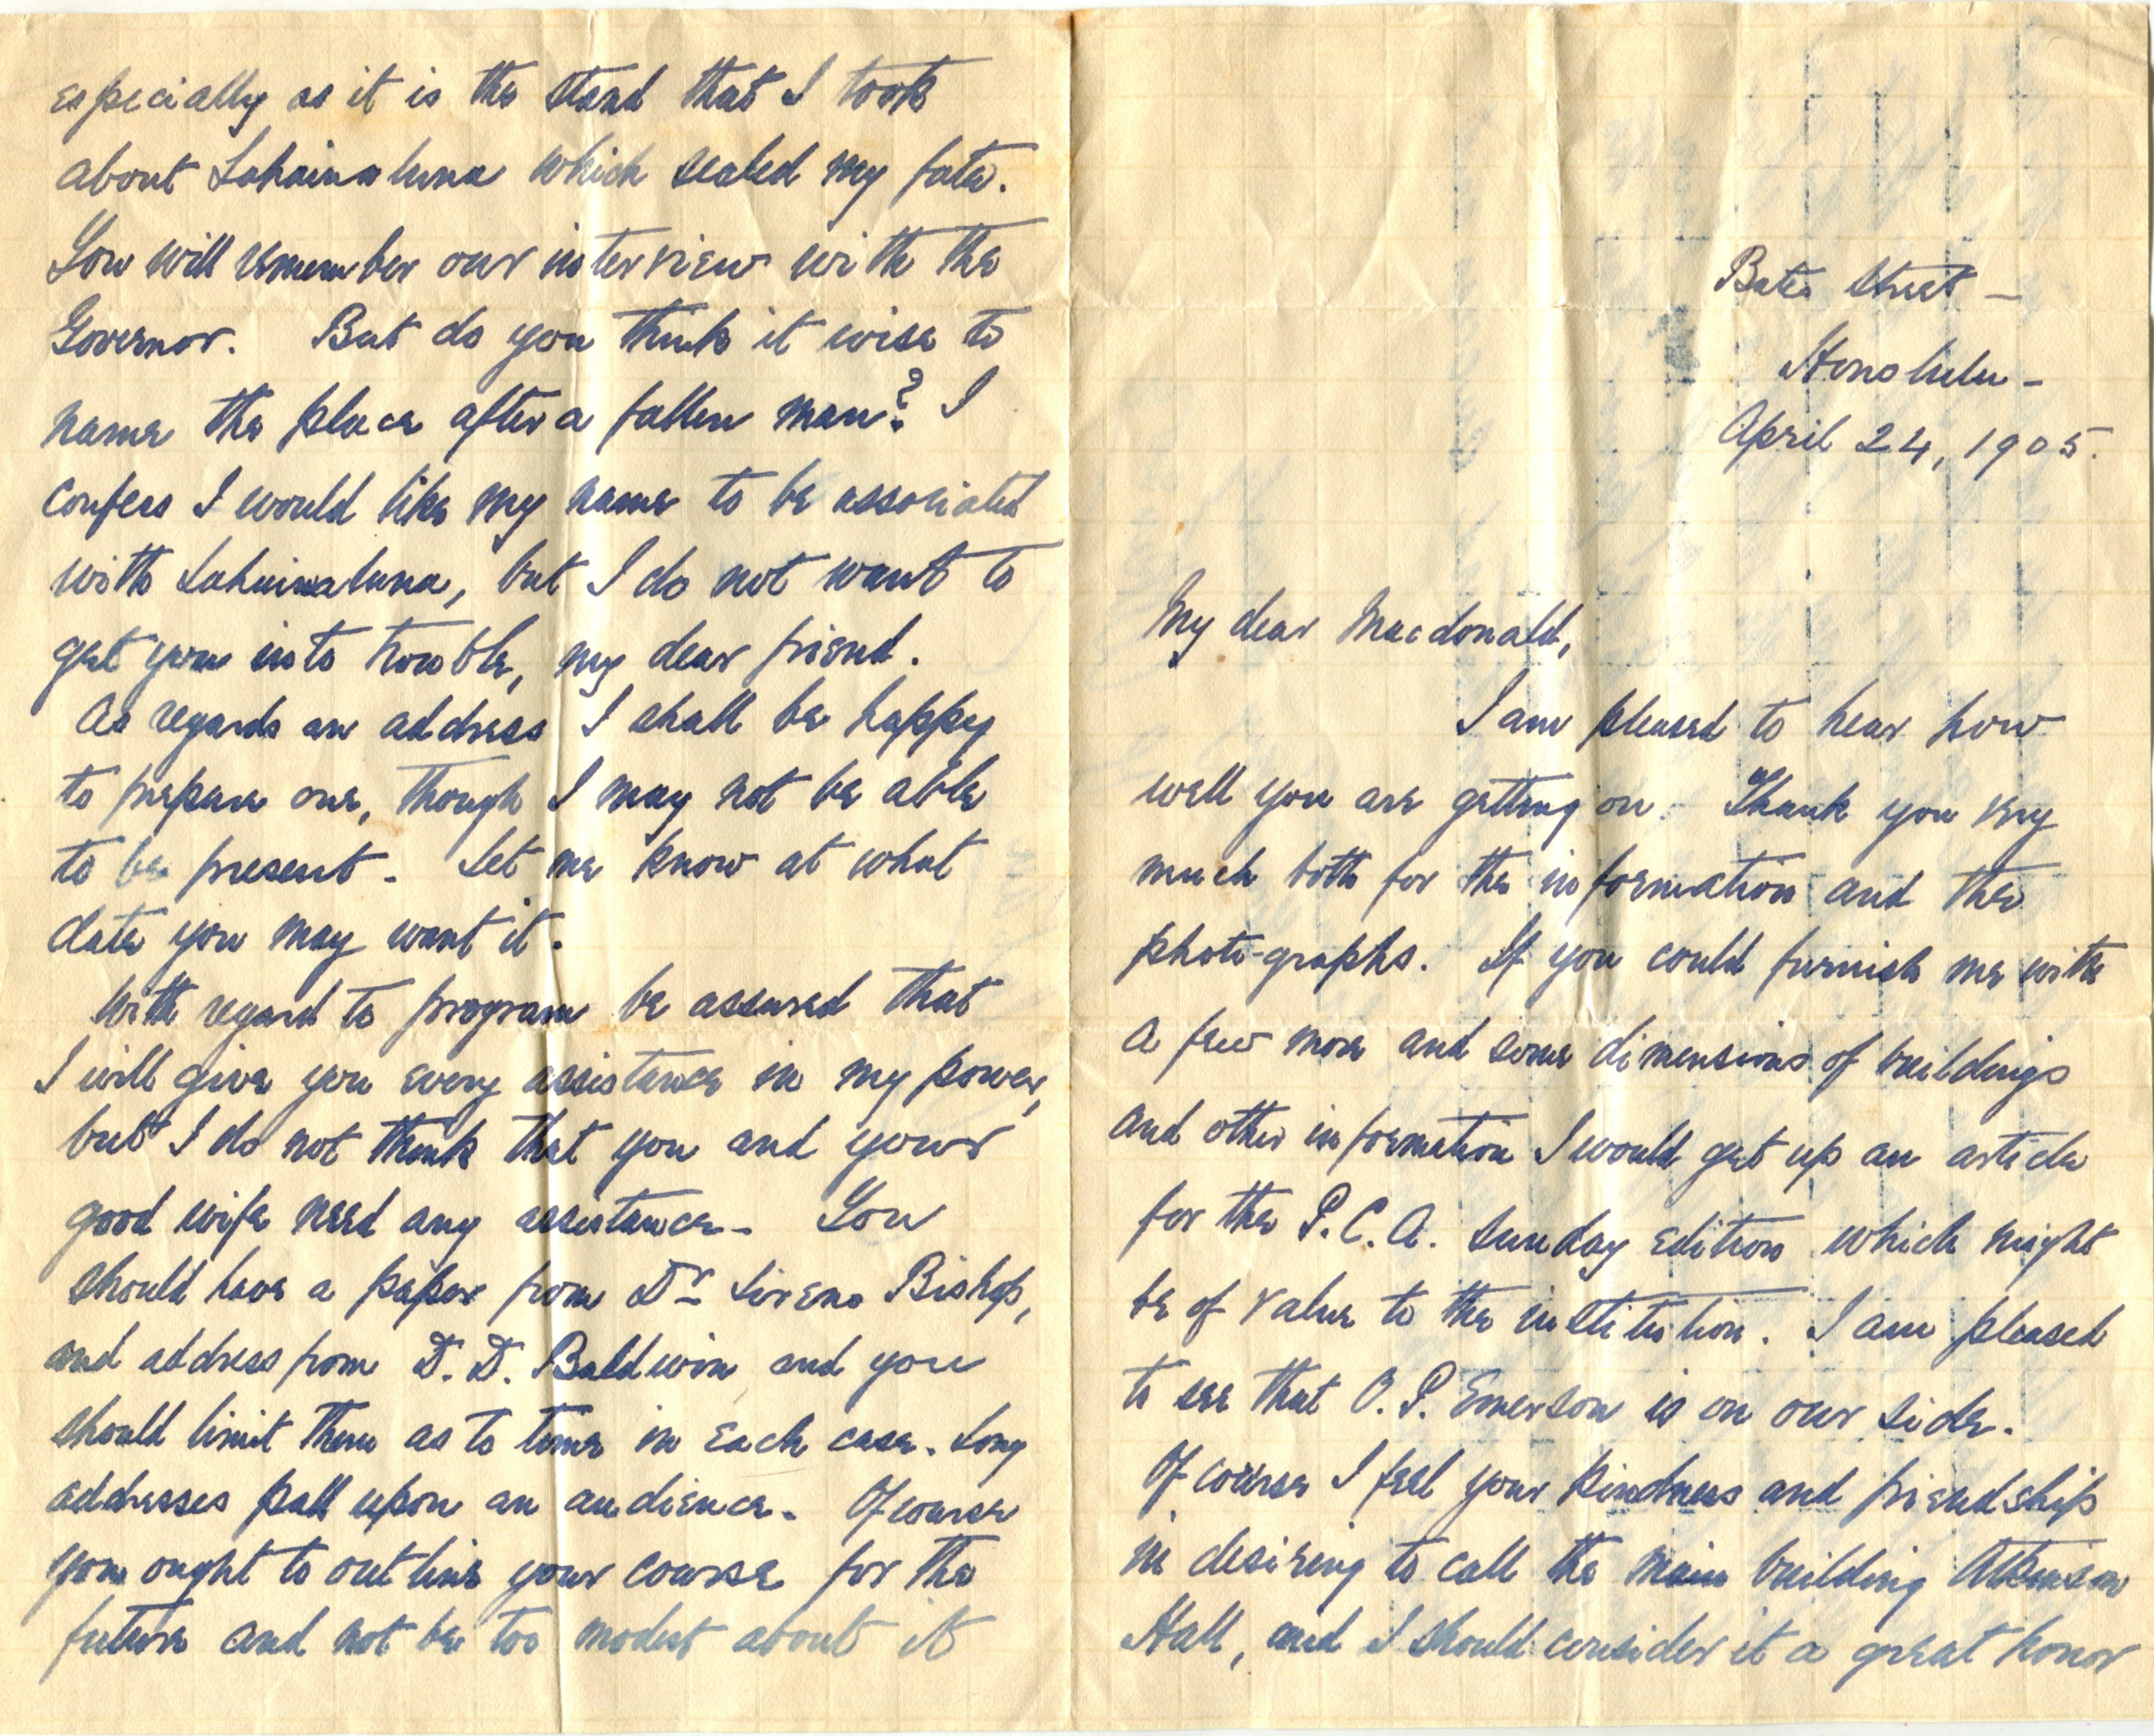 Bates Street —
Honolulu -
April 24, 1905.
My dear Macdonald,
I am pleased to hear how
well you are getting on. Thank you very
much both for the information and the
photo-graphs. If you could furnish me with
a few more and some dimensions of buildings
and other information I would get up an article
for the P. C. A. Sunday edition which might
be of value to the institution. I am pleased
to see that O. P. Emerson is on our side.
Of course I feel your kindness and friendship
in desiring to call the main building Atkinson
Hall, and I should consider it a great honor
especially as it is the stand that I took
about Lahainaluna which sealed my fate.
You will remember our interview with the
Governor. But do you think it wise to
name the place after a fallen man? I
confess I would like my name to be associated
with Lahainaluna, but I do not want to
get you into trouble, my dear friend.
As regards an address I shall be happy
to prepare one, though I may not be able
to be present - Let me know at what
date you may want it.
With regard to program be assured that
I will give you every assistance in my power,
but I do not think that you and your
good wife need any assistance - You
should have a paper from Dr Sereno Bishop,
and address from D. D. Baldwin and you
should limit them as to time in each case. Long
addresses pall upon an audience. Of course
you ought to outline your course for the
future and not be too modest about it